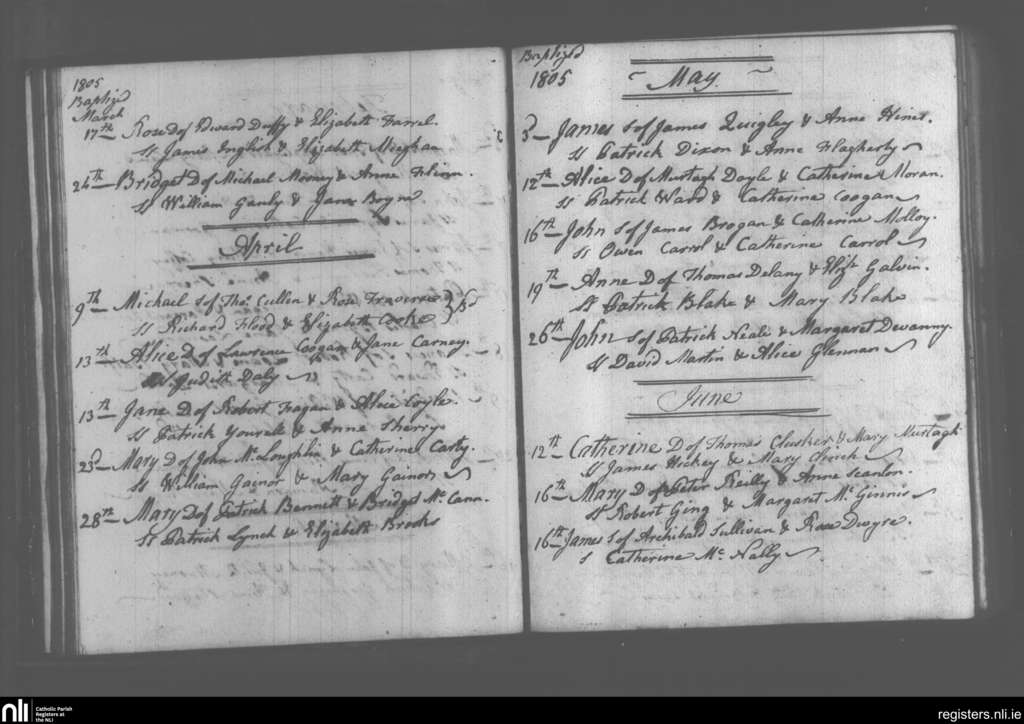 1805
Baptizd
March
17th Rose D of Edward Duffy & Elizabeth Farrel.
Ss James English & Elizabeth Meeghan
24th Bridget D of Michael Mooney & Anne Flinn.
Ss William Ganly & Jane Boyne.
April
9th Michael S of Thos. Cullen & Rose Traverse
Ss Richard Flood & Elizabeth Cooke
13th Alice D of Lawrence Coogan & Jane Carney.
Judith Daly
13th Jane D of Robert Fagan & Alice Coyle.
Ss Patrick Yourell & Anne Sherry.
23d Mary D of John McLoughlin & Catherine Carty.
Ss William Gainor & Mary Gainor
28th Mary D of Patrick Bennett & Bridget Mc Cann.
Ss Patrick Lynch & Elizabeth Brooks
Baptized
1805
May.
3 James S of James Quigley & Anne Hines.
Ss Patrick Dixon & Anne Flagherty
12th Alice D of Murtagh Doyle & Catherine Moran.
Ss Patrick Ward & Catherine Coogan
16th John S of James Brogan & Catherine Molloy.
Ss Owen Carrol & Catherine Carrol
19th Anne D of Thomas Delany & Elizth Galvin.
Ss Patrick Blake & Mary Blake
26th John S of Patrick Neale & Margaret Dewanny.
Ss David Martin & Alice Glennan
June
12th Catherine D of Thomas Clusker & Mary Murtagh
Ss James Hickey & Mary
16th Mary D of Peter Reilly & Anne Scanlon.
Ss Robert Ging & Margaret Mc Ginnis
16th James S of Archibald Sullivan & Rose Dwyre.
S Catherine Mc Nally
nli
Catholic Parish
Registers at
the NLI
registers.nli.ie